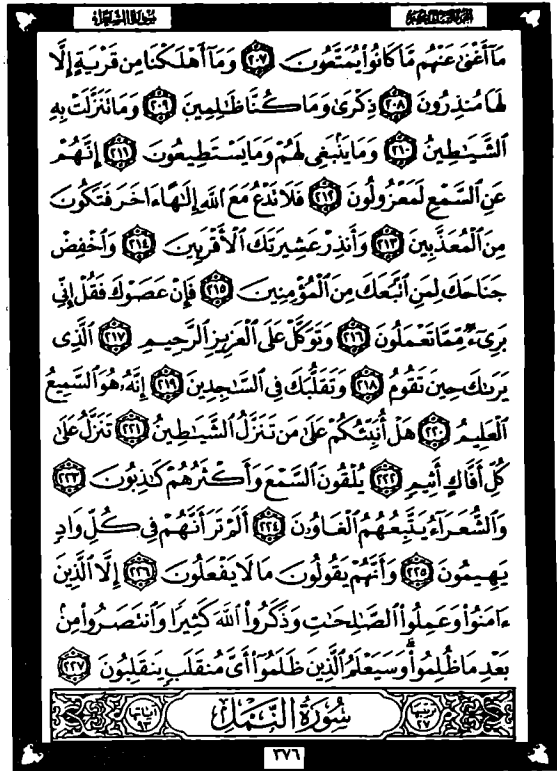 الجزء التاسع عشر سورة الشعراء
مَآ أَغْنَىٰ عَنْهُم مَّا كَانُوا۟ يُمَتَّعُونَ ٢٠٧ وَمَآ أَهْلَكْنَا مِن قَرْيَةٍ إِلَّا
لَهَا مُنذِرُونَ ٢٠٨ ذِكْرَىٰ وَمَا كُنَّا ظَٰلِمِينَ ٢٠٩ وَمَا تَنَزَّلَتْ بِهِ
ٱلشَّيَٰطِينُ ٢١٠ وَمَا يَنۢبَغِى لَهُمْ وَمَا يَسْتَطِيعُونَ ٢١١ إِنَّهُمْ
عَنِ ٱلسَّمْعِ لَمَعْزُولُونَ ٢١٢ فَلَا تَدْعُ مَعَ ٱللَّهِ إِلَٰهًا ءَاخَرَ فَتَكُونَ
مِنَ ٱلْمُعَذَّبِينَ ٢١٣ وَأَنذِرْ عَشِيرَتَكَ ٱلْأَقْرَبِينَ ٢١٤ وَٱخْفِضْ
جَنَاحَكَ لِمَنِ ٱتَّبَعَكَ مِنَ ٱلْمُؤْمِنِينَ ٢١٥ فَإِنْ عَصَوْكَ فَقُلْ إِنِّى
بَرِىٓءٌ مِّمَّا تَعْمَلُونَ ٢١٦ وَتَوَكَّلْ عَلَى ٱلْعَزِيزِ ٱلرَّحِيمِ ٢١٧ ٱلَّذِى
يَرَىٰكَ حِينَ تَقُومُ ٢١٨ وَتَقَلُّبَكَ فِى ٱلسَّٰجِدِينَ ٢١٩ إِنَّهُۥ هُوَ ٱلسَّمِيعُ
ٱلْعَلِيمُ ٢٢٠ هَلْ أُنَبِّئُكُمْ عَلَىٰ مَن تَنَزَّلُ ٱلشَّيَٰطِينُ ٢٢١ تَنَزَّلُ عَلَىٰ
كُلِّ أَفَّاكٍ أَثِيمٍ ٢٢٢ يُلْقُونَ ٱلسَّمْعَ وَأَكْثَرُهُمْ كَٰذِبُونَ ٢٢٣
وَٱلشُّعَرَآءُ يَتَّبِعُهُمُ ٱلْغَاوُۥنَ ٢٢٤ أَلَمْ تَرَ أَنَّهُمْ فِى كُلِّ وَادٍ
يَهِيمُونَ ٢٢٥ وَأَنَّهُمْ يَقُولُونَ مَا لَا يَفْعَلُونَ ٢٢٦ إِلَّا ٱلَّذِينَ
ءَامَنُوا۟ وَعَمِلُوا۟ ٱلصَّٰلِحَٰتِ وَذَكَرُوا۟ ٱللَّهَ كَثِيرًا وَٱنتَصَرُوا۟ مِنۢ
بَعْدِ مَا ظُلِمُوا۟ ۗ وَسَيَعْلَمُ ٱلَّذِينَ ظَلَمُوٓا۟ أَىَّ مُنقَلَبٍ يَنقَلِبُونَ ٢٢٧
ترتيبها ٢٧ سُورَةُ ٱلنَّمْلِ آياتها ٩٣
٣٧٦